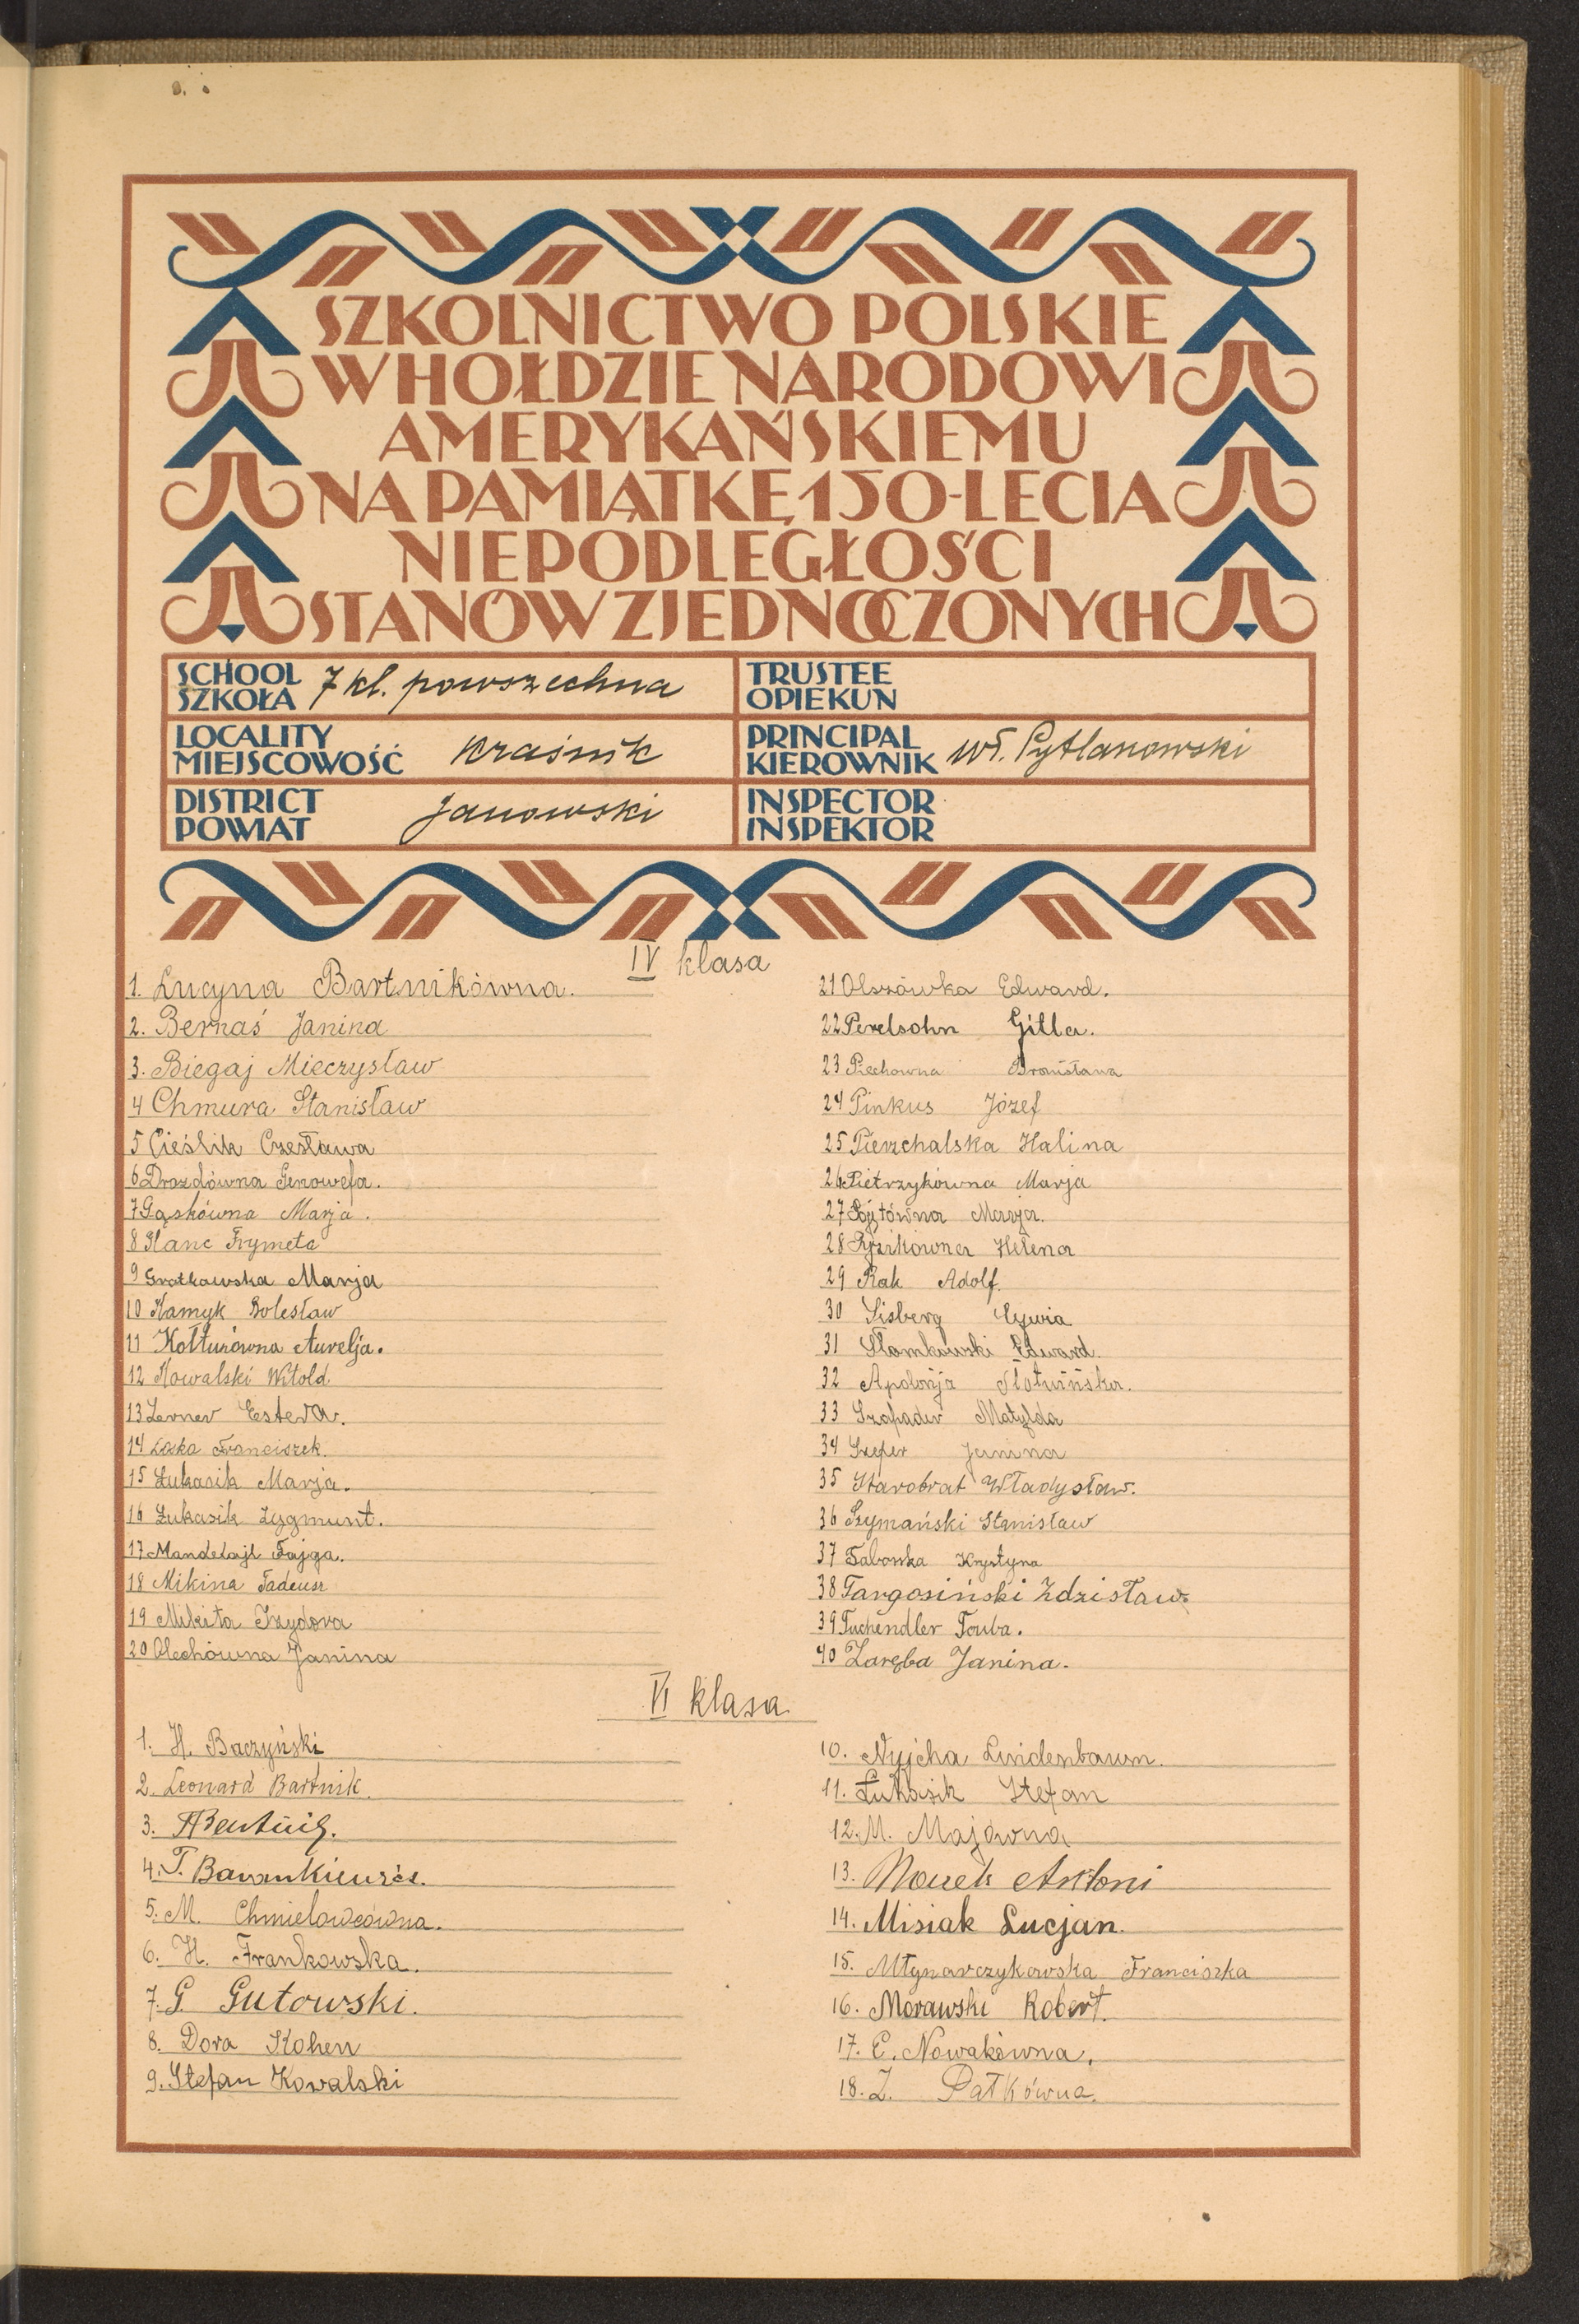 SZKOLNICTWO POLSKIE
W HOŁDZIE NARODOWI
AMERYKAŃSKIEMU
NA PAMIĄTKĘ 150-LECIA
NIEPODLEGŁOŚCI
STANÓW ZJEDNOCZONYCH
SCHOOL
SZKOŁA 7 kl. powszechna
TRUSTEE
OPIEKUN
LOCALITY
MIEJSCOWOŚĆ Kraśnik
PRINCIPAL
KIEROWNIK Wł. Pytlanowski
DISTRICT
POWIAT Janowski
INSPECTOR
INSPEKTOR
IV klasa
1. Lucyna Bartnikówna.
2. Bernaś Janina
3. Biegaj Mieczysław
4 Chmura Stanisław
5 Cieślik Czesława
6 Drozdówna Genowefa.
7 Gąskówna Marja.
8 Glanc Frymeta
9 Gratkowska Marja
10 Kamyk Bolesław
11 Kołtunówna Aurelja.
12 Kowalski Witold
13 Lerner Estera.
14 Laska Franciszek.
15 Łukasik Marja.
16 Łukasik Zygmunt.
17 Mandelajl Fajga.
18 Mikina Tadeusz
19 Mikita Izydora
20 Olechówna Janina
21 Olszówka Edward.
22 Perelsohn Gitla.
23 Piechowna Bronisława
24 Pinkus Józef
25 Pierzchalska Halina
26 Pietrzykówna Marja
27 Marja.
28 Ryzikówna Helena
29 Rak Adolf.
30 Sisberg Cywia
31 Słomkowski Edward.
32 Apolonja Słotwińska.
33 Szafadir Matylda
34 Szefer Janina
35 Starobrat Władysław.
36 Szymański Stanisław
37 Sabowska Krystyna
38 Targosiński Zdzisław.
39 Tuchendler Touba.
40 Zaręba Janina.
VI klasa
1. H. Baczyński
2. Leonard Bartnik.
3.
4. T. Barankiewicz.
5. M. Chmielowcówna.
6. H. Frankowska.
7. G. Gutowski.
8. Dora Kohen
9. Stefan Kowalski
10. Nyjcha Lindenbaum.
11. Łukasik Stefan
12. M. Majówna
13. Antoni
14. Misiak Lucjan.
15. Młynarczykowska Franciszka
16. Morawski Robert.
17. E. Nowakówna.
18. Z. Patkówna.